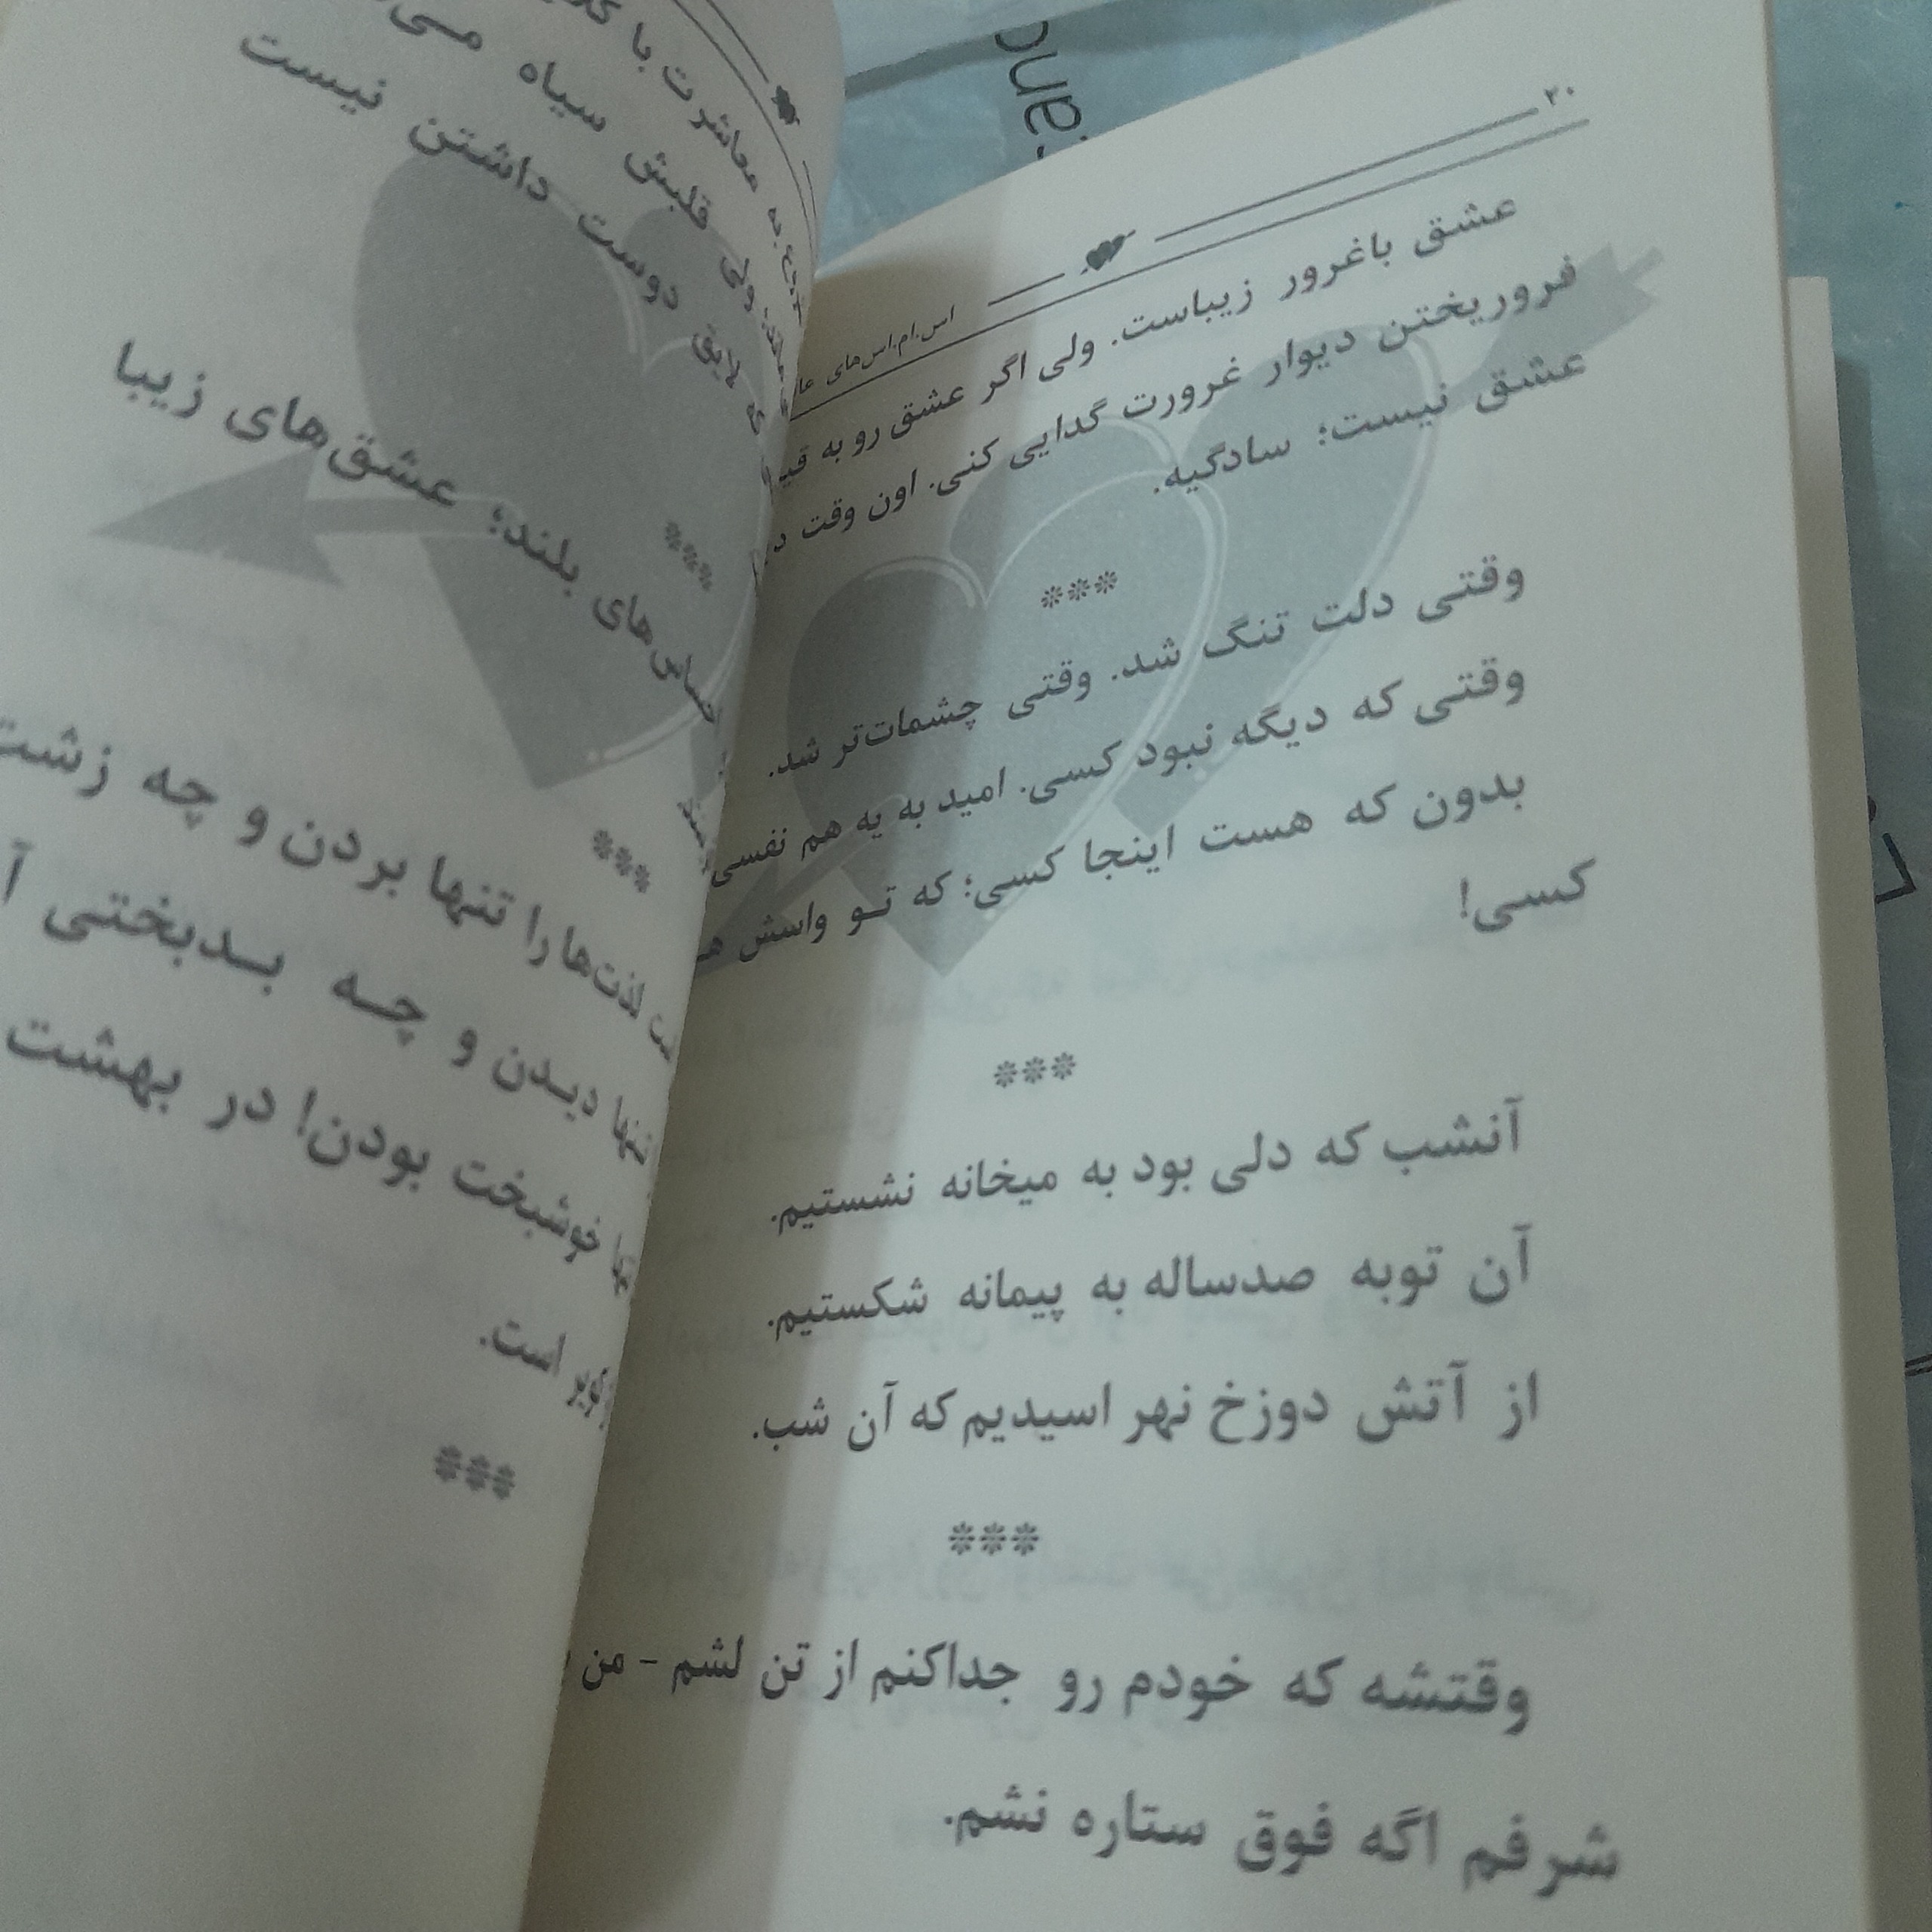 ۳۰
اس.ام.اس‌های
عشق باغرور زیباست. ولی اگر عشق رو به
فروریختن دیوار غرورت گدایی کنی. اون وقت
عشق نیست؛ سادگیه.
***
وقتی دلت تنگ شد. وقتی چشمات‌تر شد.
وقتی که دیگه نبود کسی. امید به یه هم نفسی
بدون که هست اینجا کسی؛ که تو واسش
کسی!
***
آنشب که دلی بود به میخانه نشستیم.
آن توبه صدساله به پیمانه شکستیم.
از آتش دوزخ نهر اسیدیم که آن شب.
***
وقتشه که خودم رو جداکنم از تن لشم - من
شرفم اگه فوق ستاره نشم.
معاشرت با
ولی قلبش سیاه
که لایق دوست داشتن نیست
***
بلند؛ عشق‌های زیبا
***
لذت‌ها را تنها بردن و چه زشت
تنها دیدن و چه بدبختی
خوشبخت بودن! در بهشت
است.
***